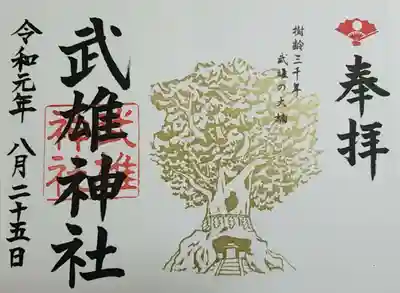 奉拝
樹齢三千年
武雄の大楠
武雄神社
武雄
神社
令和元年 八月二十五日